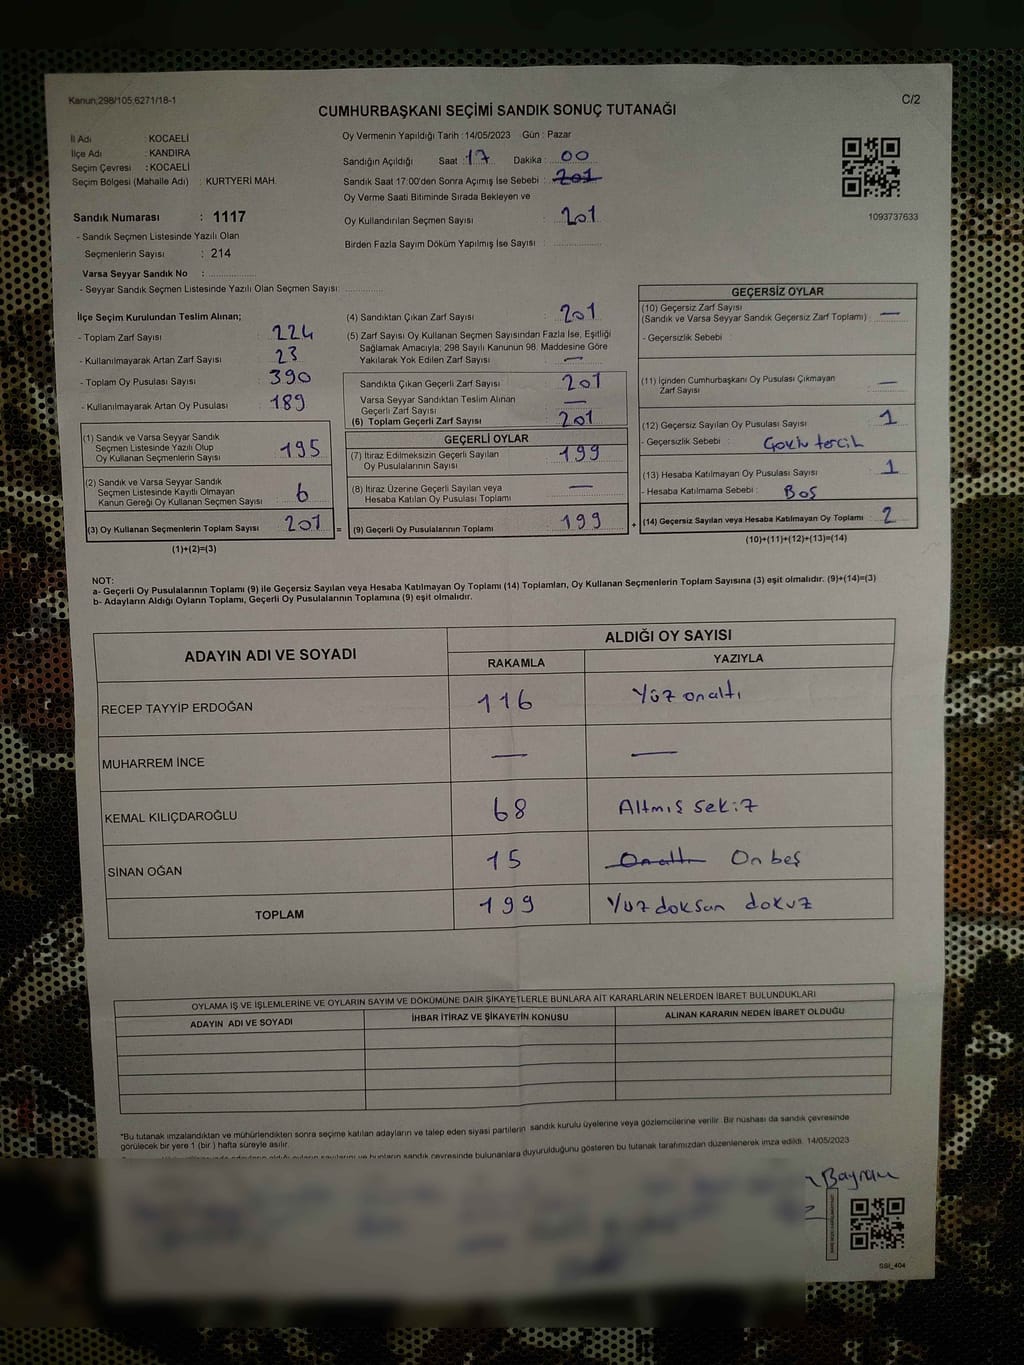 Kanun;298/105;6271/18-1
C/2
CUMHURBAŞKANI SEÇİMİ SANDIK SONUÇ TUTANAĞI
İl Adı : KOCAELİ
İlçe Adı : KANDIRA
Seçim Çevresi : KOCAELİ
Seçim Bölgesi (Mahalle Adı) : KURTYERİ MAH.
Oy Vermenin Yapıldığı Tarih : 14/05/2023 Gün : Pazar
Sandığın Açıldığı Saat : 17 Dakika : 00
Sandık Saat 17:00'den Sonra Açımış İse Sebebi : 201
Oy Verme Saati Bitiminde Sırada Bekleyen ve
Oy Kullandırılan Seçmen Sayısı : 201
Birden Fazla Sayım Döküm Yapılmış İse Sayısı :
1093737633
Sandık Numarası : 1117
- Sandık Seçmen Listesinde Yazılı Olan
Seçmenlerin Sayısı : 214
Varsa Seyyar Sandık No :
- Seyyar Sandık Seçmen Listesinde Yazılı Olan Seçmen Sayısı:
İlçe Seçim Kurulundan Teslim Alınan;
- Toplam Zarf Sayısı : 224
- Kullanılmayarak Artan Zarf Sayısı : 23
- Toplam Oy Pusulası Sayısı : 390
- Kullanılmayarak Artan Oy Pusulası : 189
(1) Sandık ve Varsa Seyyar Sandık
Seçmen Listesinde Yazılı Olup
Oy Kullanan Seçmenlerin Sayısı : 195
(2) Sandık ve Varsa Seyyar Sandık
Seçmen Listesinde Kayıtlı Olmayan
Kanun Gereği Oy Kullanan Seçmen Sayısı : 6
(3) Oy Kullanan Seçmenlerin Toplam Sayısı : 201 =
(1)+(2)=(3)
(4) Sandıktan Çıkan Zarf Sayısı : 201
(5) Zarf Sayısı Oy Kullanan Seçmen Sayısından Fazla İse, Eşitliği
Sağlamak Amacıyla; 298 Sayılı Kanunun 98. Maddesine Göre
Yakılarak Yok Edilen Zarf Sayısı : —
Sandıkta Çıkan Geçerli Zarf Sayısı : 201
Varsa Seyyar Sandıktan Teslim Alınan
Geçerli Zarf Sayısı : —
(6) Toplam Geçerli Zarf Sayısı : 201
GEÇERLİ OYLAR
(7) İtiraz Edilmeksizin Geçerli Sayılan
Oy Pusulalarının Sayısı : 199
(8) İtiraz Üzerine Geçerli Sayılan veya
Hesaba Katılan Oy Pusulası Toplamı : —
(9) Geçerli Oy Pusulalarının Toplamı : 199 +
GEÇERSİZ OYLAR
(10) Geçersiz Zarf Sayısı
(Sandık ve Varsa Seyyar Sandık Geçersiz Zarf Toplamı) : —
- Geçersizlik Sebebi
(11) İçinden Cumhurbaşkanı Oy Pusulası Çıkmayan
Zarf Sayısı : —
(12) Geçersiz Sayılan Oy Pusulası Sayısı : 1
- Geçersizlik Sebebi : Çoklu tercih
(13) Hesaba Katılmayan Oy Pusulası Sayısı : 1
- Hesaba Katılmama Sebebi : Boş
(14) Geçersiz Sayılan veya Hesaba Katılmayan Oy Toplamı : 2
(10)+(11)+(12)+(13)=(14)
NOT:
a- Geçerli Oy Pusulalarının Toplamı (9) ile Geçersiz Sayılan veya Hesaba Katılmayan Oy Toplamı (14) Toplamları, Oy Kullanan Seçmenlerin Toplam Sayısına (3) eşit olmalıdır. (9)+(14)=(3)
b- Adayların Aldığı Oyların Toplamı, Geçerli Oy Pusulalarının Toplamına (9) eşit olmalıdır.
ADAYIN ADI VE SOYADI
ALDIĞI OY SAYISI
RAKAMLA YAZIYLA
RECEP TAYYİP ERDOĞAN 116 Yüz onaltı
MUHARREM İNCE — —
KEMAL KILIÇDAROĞLU 68 Altmış sekiz
SİNAN OĞAN 15 Onaltı On beş
TOPLAM 199 Yüz doksan dokuz
OYLAMA İŞ VE İŞLEMLERİNE VE OYLARIN SAYIM VE DÖKÜMÜNE DAİR ŞİKAYETLERLE BUNLARA AİT KARARLARIN NELERDEN İBARET BULUNDUKLARI
ADAYIN ADI VE SOYADI İHBAR İTİRAZ VE ŞİKAYETİN KONUSU ALINAN KARARIN NEDEN İBARET OLDUĞU
*Bu tutanak imzalandıktan ve mühürlendikten sonra seçime katılan adayların ve talep eden siyasi partilerin sandık kurulu üyelerine veya gözlemcilerine verilir. Bir nüshası da sandık çevresinde
görülecek bir yere 1 (bir ) hafta süreyle asılır.
adayların aldığı oyların sayılarını ve bunların sandık çevresinde bulunanlara duyurulduğunu gösteren bu tutanak tarafımızdan düzenlenerek imza edildi. 14/05/2023
Bayram
SSI_404